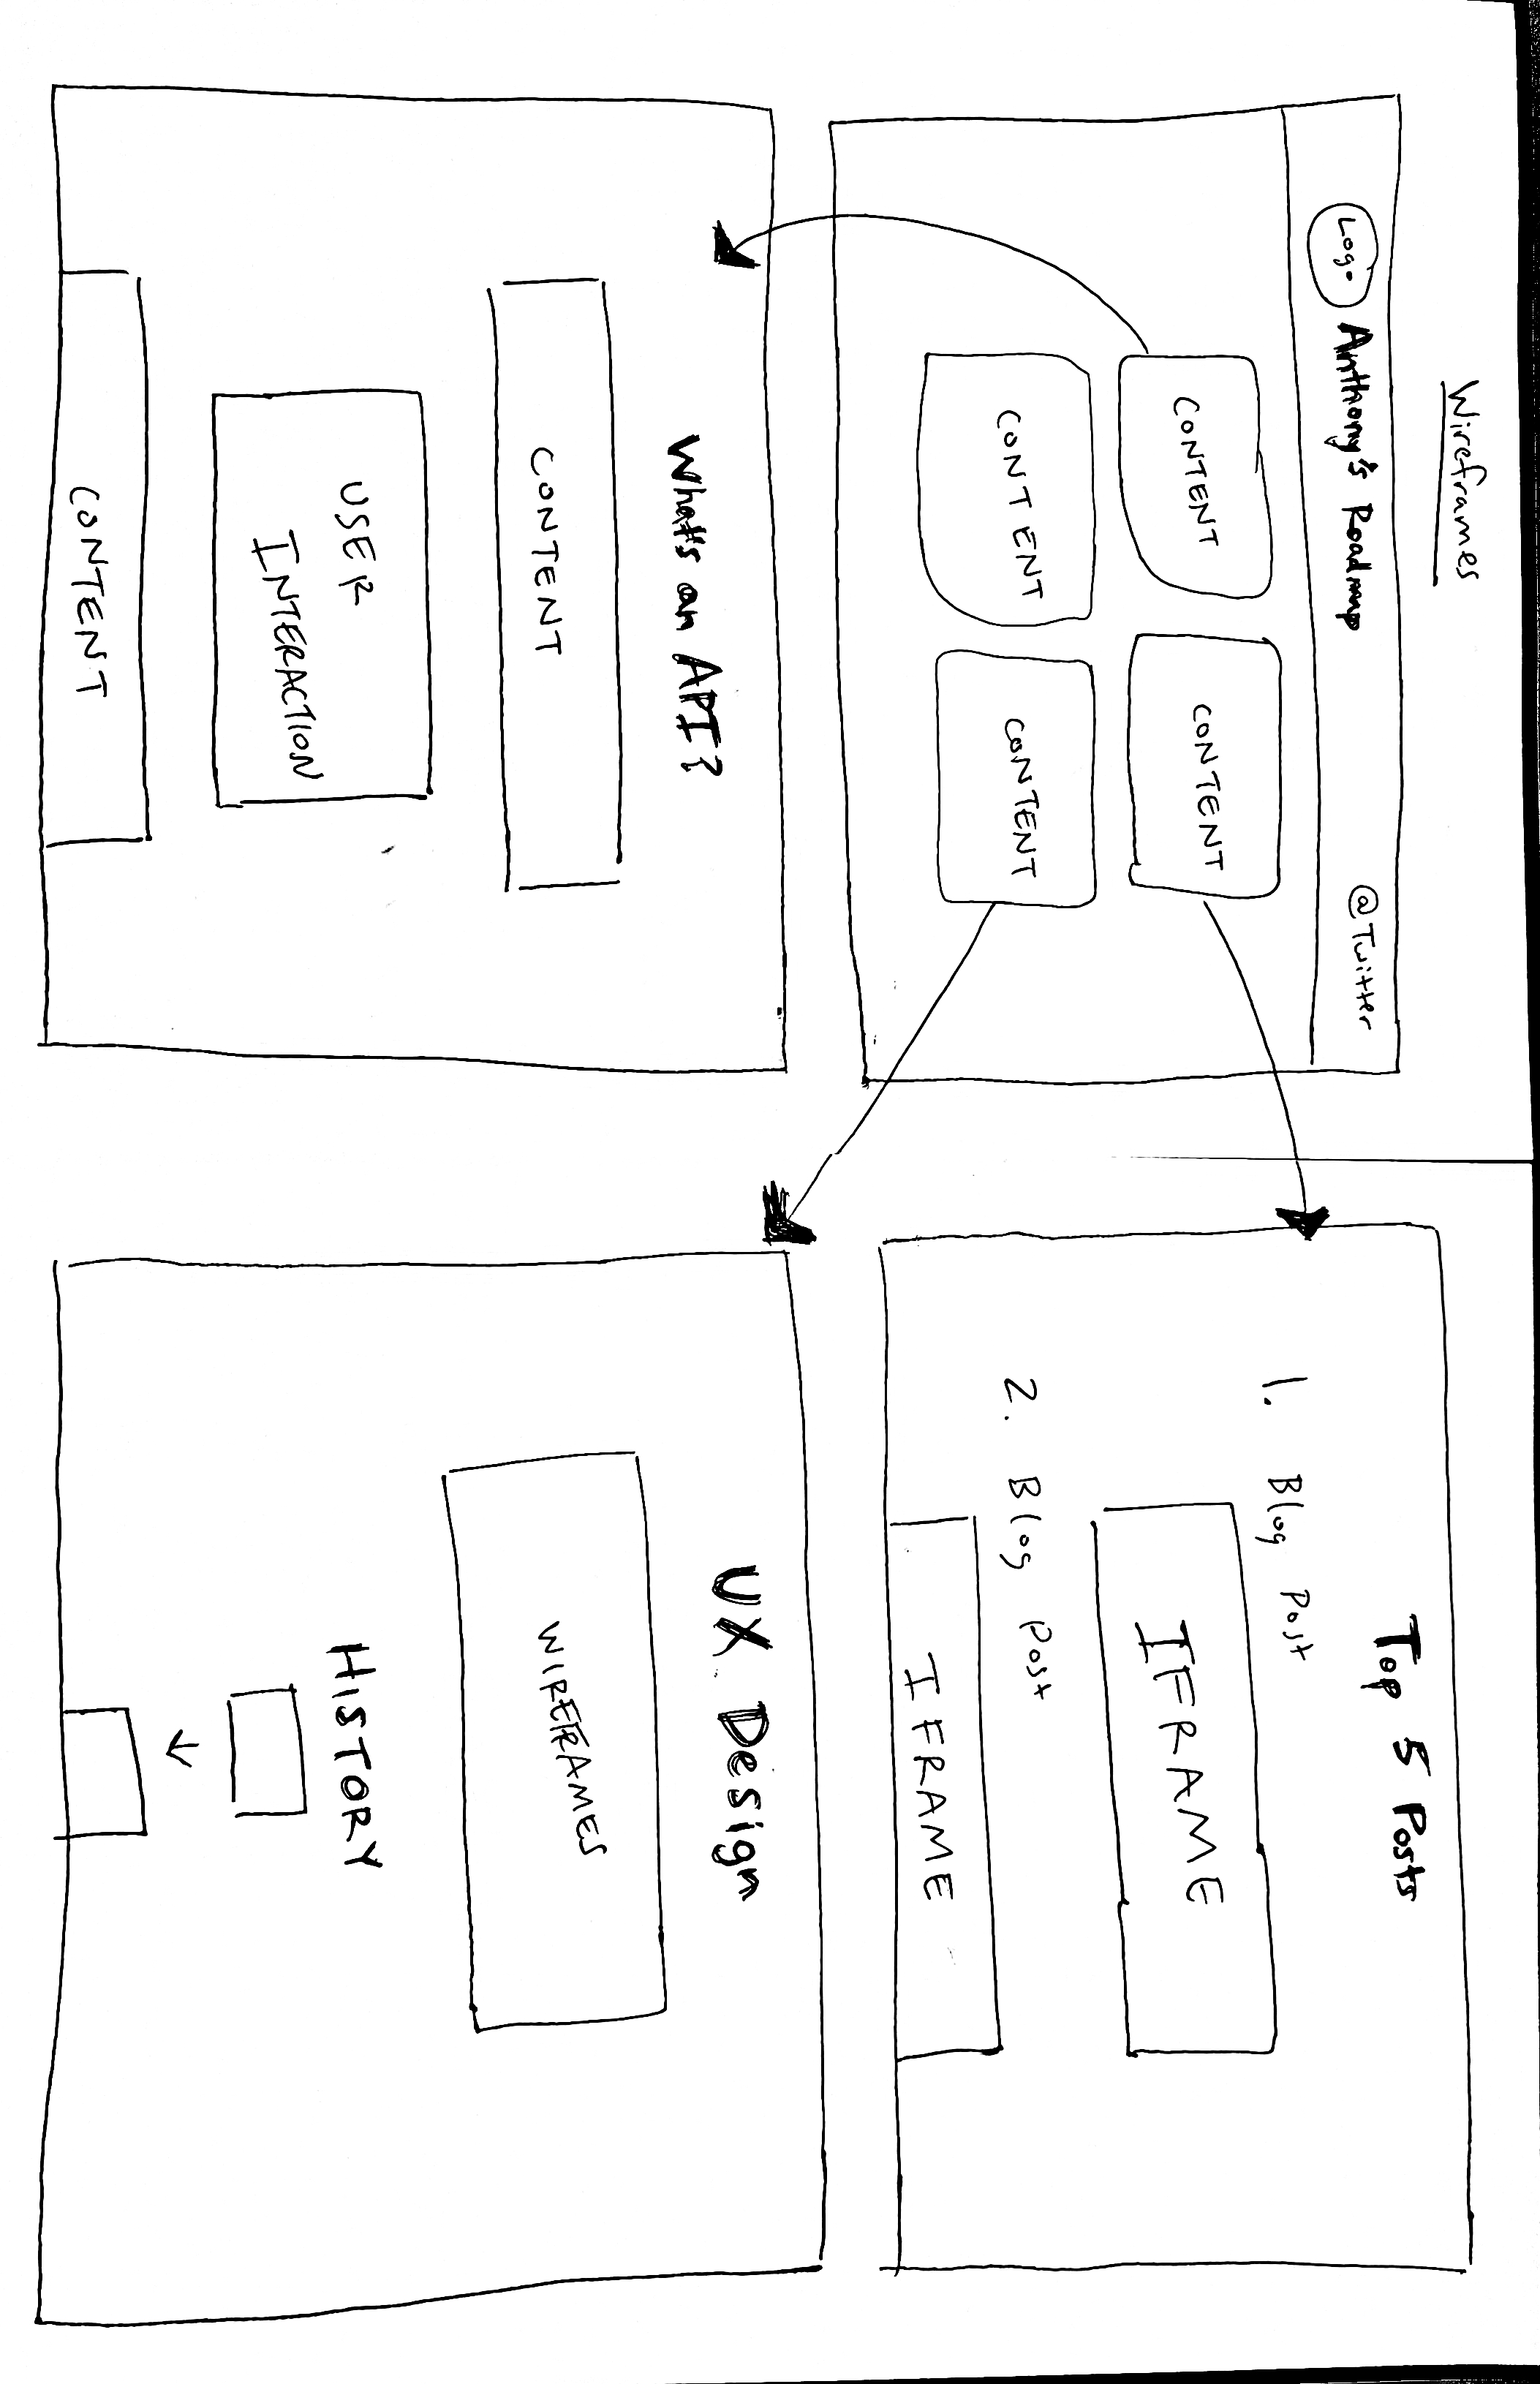 Wireframes
Logo Anthony's Roadmap @Twitter
CONTENT CONTENT
CONTENT CONTENT
Top 5 Posts
1. Blog Post
IFRAME
2. Blog Post
IFRAME
What's an API?
CONTENT
USER
INTERACTION
CONTENT
UX Design
WIREFRAMES
HISTORY